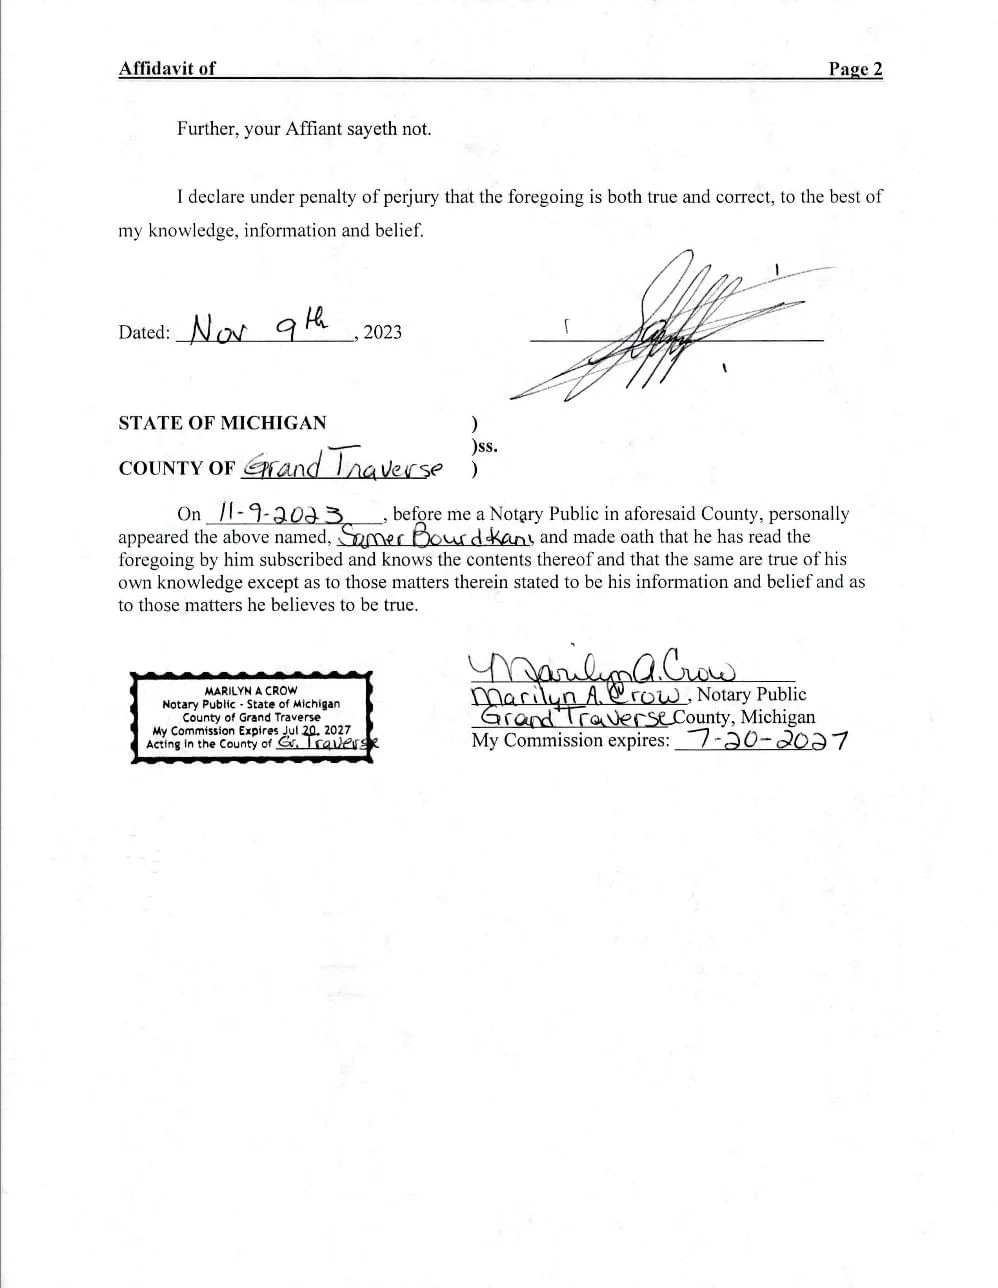 Affidavit of Page 2
Further, your Affiant sayeth not.
I declare under penalty of perjury that the foregoing is both true and correct, to the best of
my knowledge, information and belief.
Dated: Nov 9th, 2023
STATE OF MICHIGAN )
)ss.
COUNTY OF Grand Traverse )
On 11-9-2023, before me a Notary Public in aforesaid County, personally
appeared the above named, Samer Bourdkani and made oath that he has read the
foregoing by him subscribed and knows the contents thereof and that the same are true of his
own knowledge except as to those matters therein stated to be his information and belief and as
to those matters he believes to be true.
Marilyn A. Crow
Marilyn A. Crow, Notary Public
Grand Traverse County, Michigan
My Commission expires: 7-20-2027
MARILYN A CROW
Notary Public - State of Michigan
County of Grand Traverse
My Commission Expires Jul 20, 2027
Acting in the County of Gr. Traverse